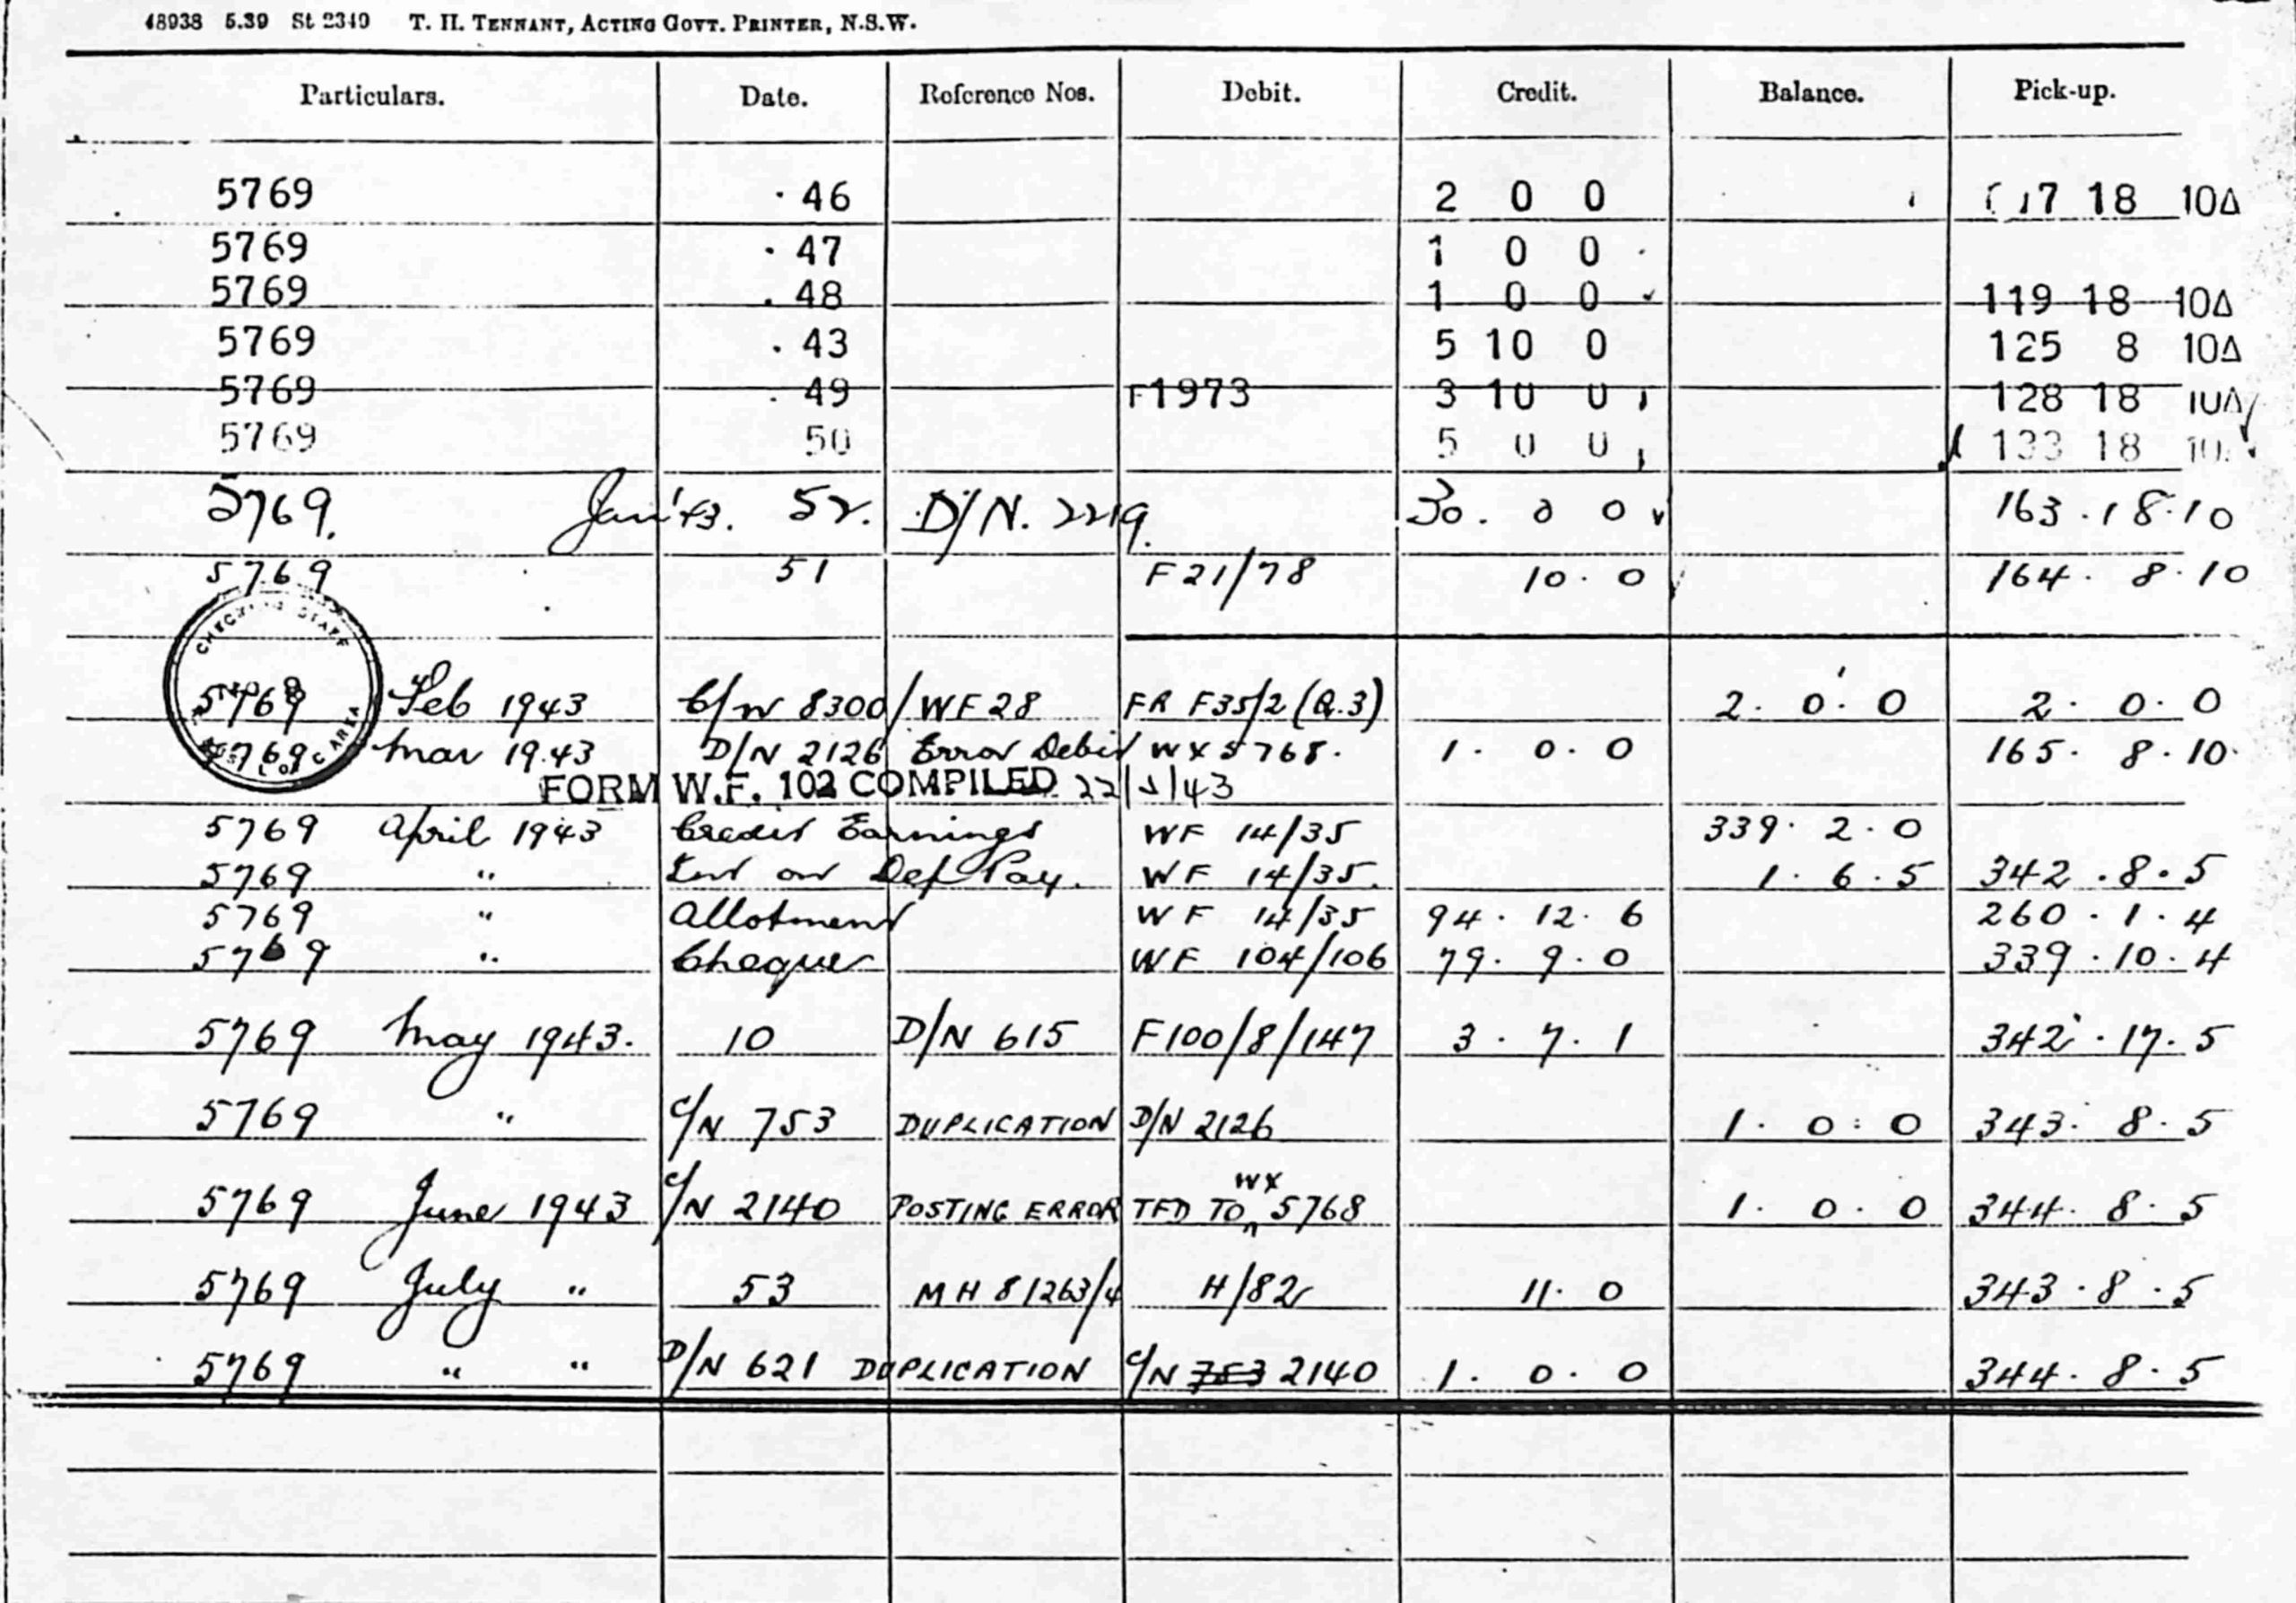 48938 5.39 St 2340 T. H. TENNANT, ACTING GOVT. PRINTER, N.S.W.
Particulars. Date. Reference Nos. Debit. Credit. Balance. Pick-up.
5769 · 46 2 0 0 17 18 10Δ
5769 · 47 1 0 0
5769 . 48 1 0 0 119 18 10Δ
5769 . 43 5 10 0 125 8 10Δ
5769 . 49 F1973 3 10 0 128 18 10Δ
5769 50 5 0 0 133 18 10
5769. Jan '43. 52. D/N. 2219. 30. 0 0 163.18.10
5769 51 F21/78 10. 0 164. 8.10
CHECKING STAFF
5769 Feb 1943 C/N 8300/WF28 FR F35/2 (Q.3) 2. 0. 0 2. 0. 0
5769 Mar 1943 D/N 2126 Error Debit WX5768. 1. 0. 0 165. 8.10.
AREA
FORM W.F. 102 COMPILED 22/5/43
5769 April 1943 Credit Earnings WF 14/35 339. 2. 0
5769 " Int on Def Pay. WF 14/35. 1. 6. 5 342. 8. 5
5769 " Allotment WF 14/35 94. 12. 6 260. 1. 4
5769 " Cheques WF 104/106 79. 9. 0 339. 10. 4
5769 May 1943. 10 D/N 615 F100/8/147 3. 7. 1 342. 17. 5
5769 " C/N 753 DUPLICATION D/N 2126 1. 0: 0 343. 8. 5
WX
5769 June 1943 C/N 2140 POSTING ERROR TFD TO 5768 1. 0. 0 344. 8. 5
5769 July " 53 MH 81263/4 H/82 11. 0 343. 8. 5
5769 " " D/N 621 DUPLICATION C/N 753 2140 1. 0. 0 344. 8. 5